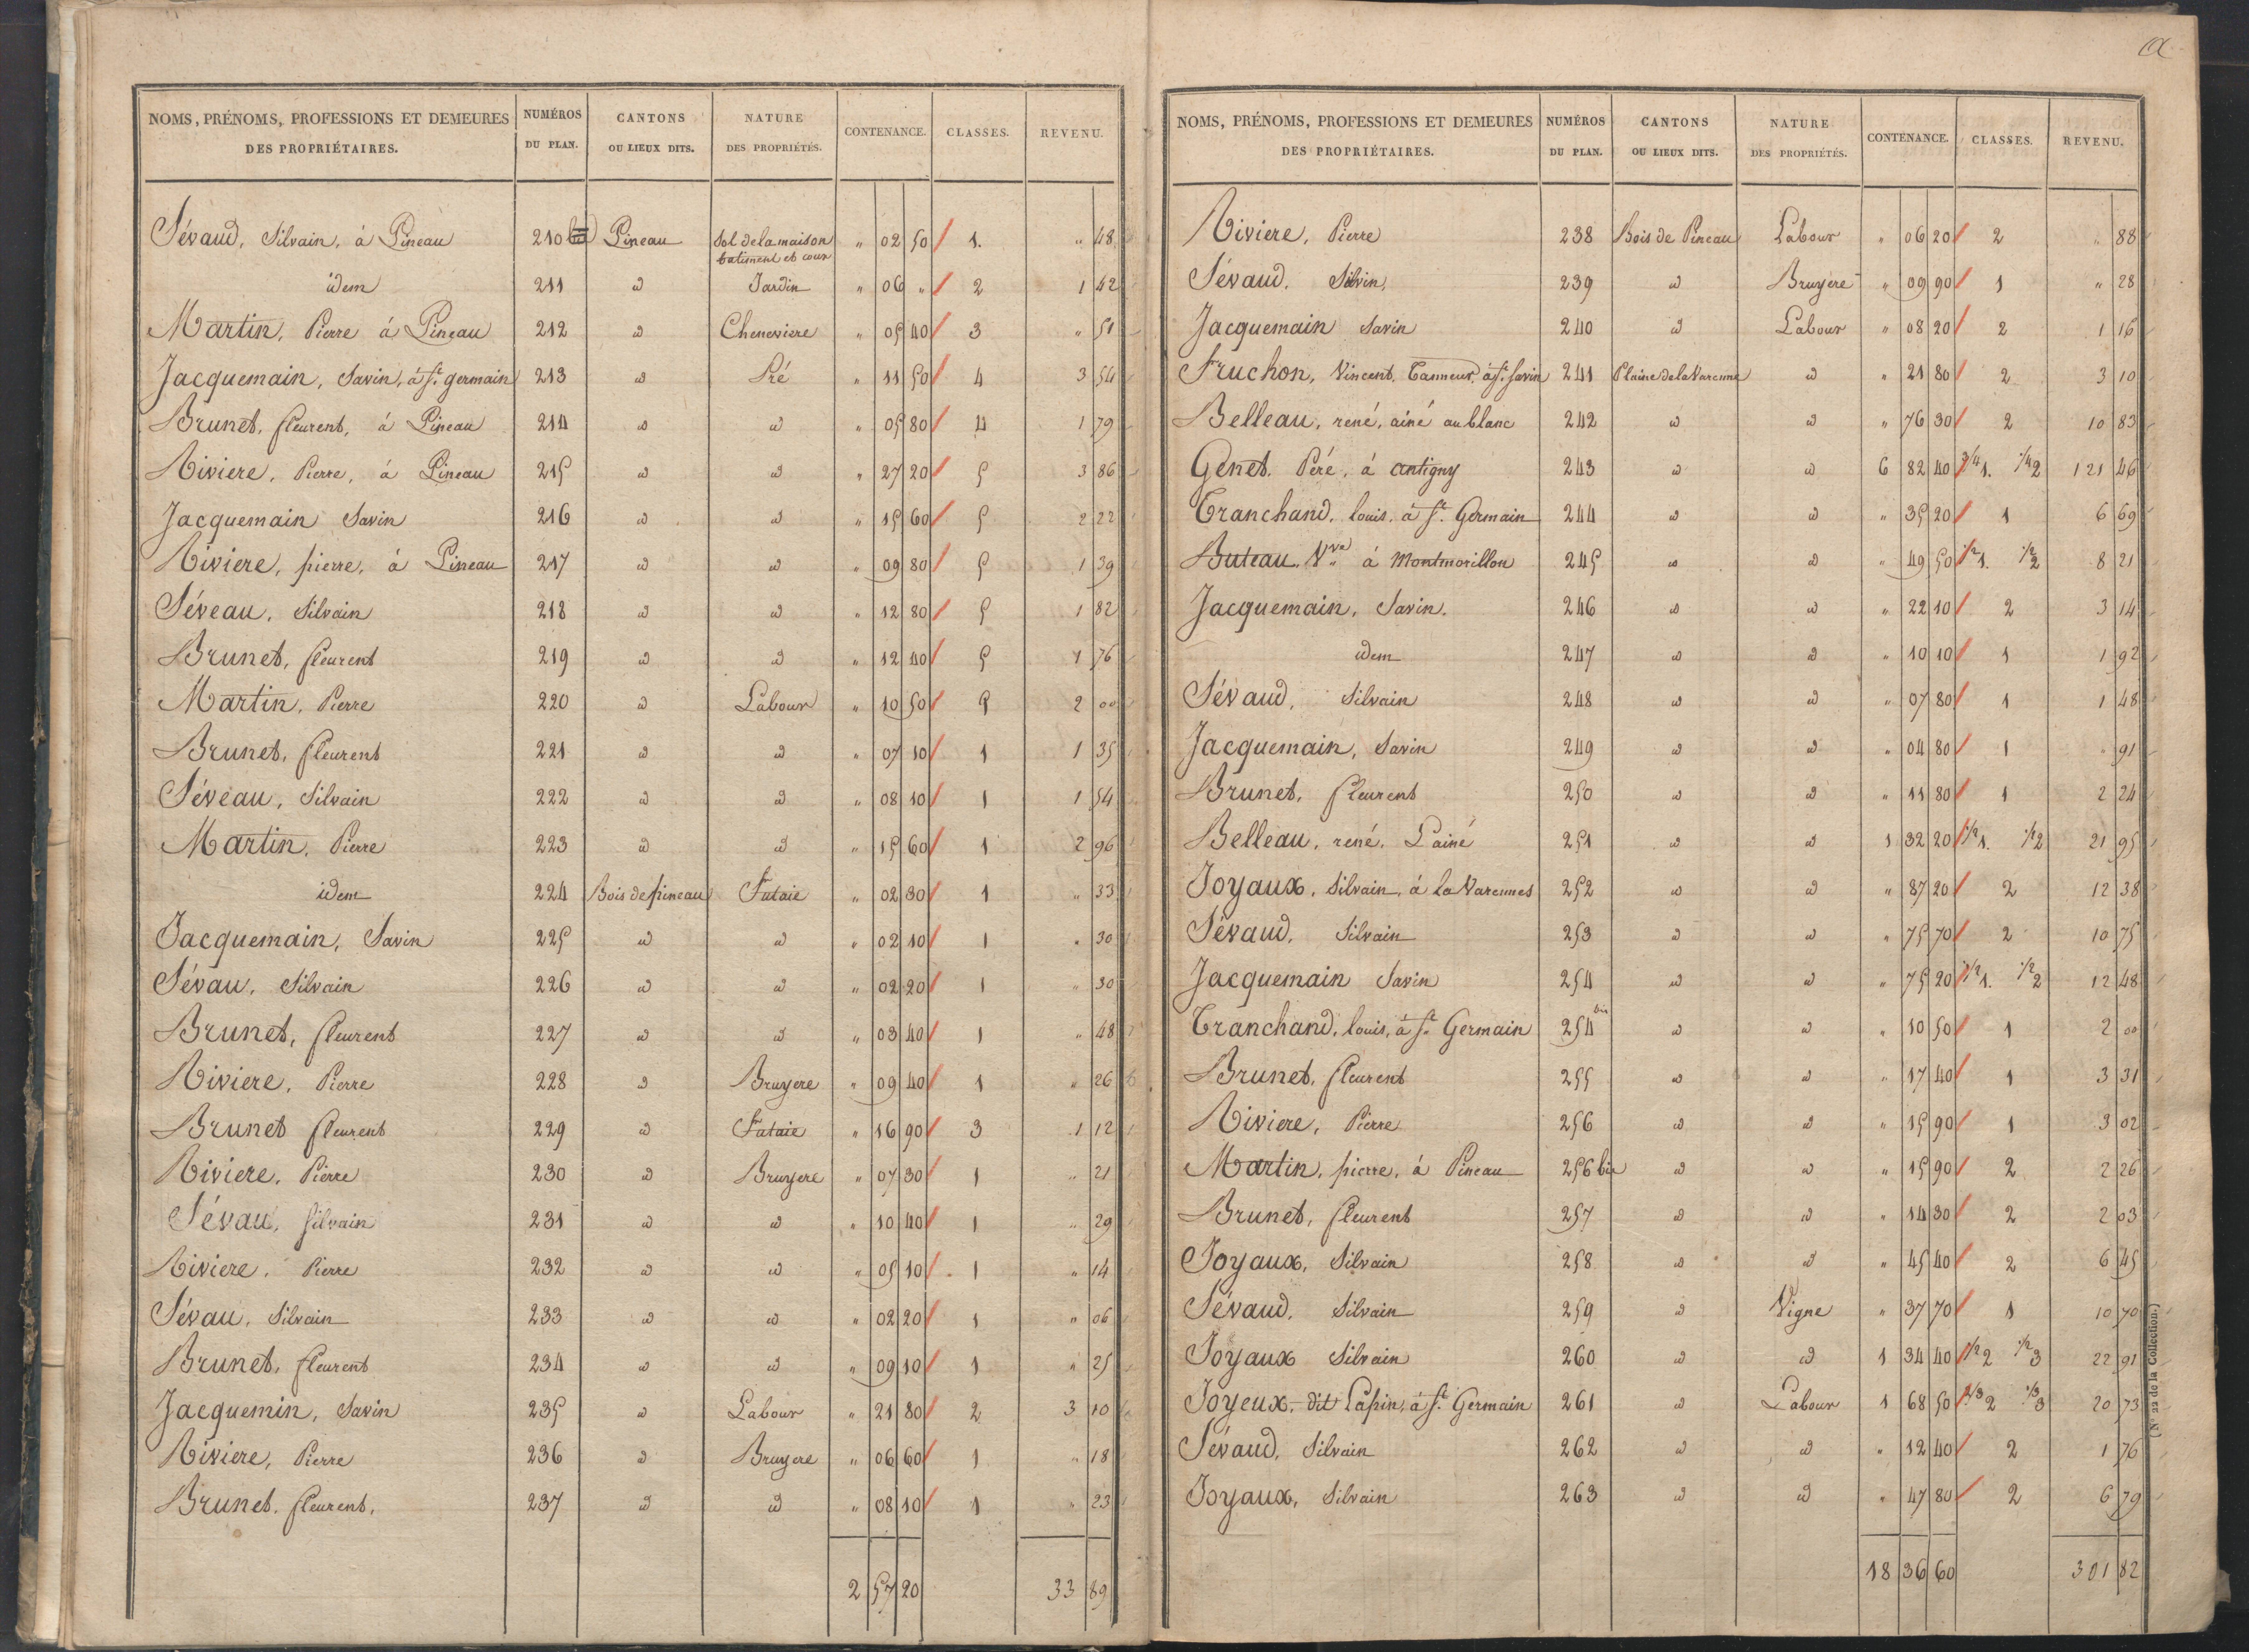 NOMS, PRÉNOMS, PROFESSIONS ET DEMEURES DES PROPRIÉTAIRES. NUMÉROS DU PLAN. CANTONS OU LIEUX DITS. NATURE DES PROPRIÉTÉS. CONTENANCE. CLASSES. REVENU.
Sévaud, Silvain, à Pineau 210 Pineau Sol de la maison batiment et cour " 02 50 1. " 48
idem 211 id Jardin " 06 " 2 1 42
Martin, Pierre à Pineau 212 id Cheneviere " 05 40 3 " 51
Jacquemain, Savin, à St. germain 213 id Pré " 11 50 4 3 54
Brunet, fleurent, à Pineau 214 id id " 05 80 4 1 79
Riviere, Pierre, à Pineau 215 id id " 27 20 5 3 86
Jacquemain Savin 216 id id " 15 60 5 2 22
Riviere, pierre, à Pineau 217 id id " 09 80 5 1 39
Séveau, Silvain 218 id id " 12 80 5 1 82
Brunet, fleurent 219 id id " 12 40 5 1 76
Martin, Pierre 220 id Labour " 10 50 2 00
Brunet, fleurent 221 id id " 07 10 1 1 35
Séveau, Silvain 222 id id " 08 10 1 1 54
Martin, Pierre 223 id id " 15 60 1 2 96
idem 224 Bois de pineau Futaie " 02 30 1 " 33
Jacquemain, Savin 225 id id " 02 10 1 " 30
Sévau, Silvain 226 id id " 02 20 1 " 30
Brunet, fleurent 227 id id " 03 40 1 " 48
Riviere, Pierre 228 id Bruyere " 09 40 1 " 26
Brunet fleurent 229 id Futaie " 16 90 3 1 12
Riviere, Pierre 230 id Bruyere " 07 30 1 " 21
Sévau, Silvain 231 id id " 10 40 1 " 29
Riviere, Pierre 232 id id " 05 10 1 " 14
Sévau, Silvain 233 id id " 02 20 1 " 06
Brunet, fleurent 234 id id " 09 10 1 " 25
Jacquemin, Savin 235 id Labour " 21 80 2 3 10
Riviere, Pierre 236 id Bruyere " 06 60 1 " 18
Brunet, fleurent, 237 id id " 08 10 1 " 23
2 57 20 33 89
NOMS, PRÉNOMS, PROFESSIONS ET DEMEURES DES PROPRIÉTAIRES. NUMÉROS DU PLAN. CANTONS OU LIEUX DITS. NATURE DES PROPRIÉTÉS. CONTENANCE. CLASSES. REVENU.
Riviere, Pierre 238 Bois de Pineau Labour " 06 20 2 " 88
Sévaud, Silvin, 239 id Bruyere " 09 90 1 " 28
Jacquemain Savin 240 id Labour " 08 20 2 1 16
Fruchon, Vincent, Tanneur, à St. Savin 241 Plaine de la Varenne id " 21 80 2 3 10
Belleau, rené, ainé au blanc 242 id id " 76 30 2 10 83
Genet, Peré, à antigny 243 id id 6 82 40 3/4 1. 1/4 2 121 46
Tranchand, louis, à St. Germain 244 id id " 35 20 1 6 69
Buteau, Vve à Montmorillon 245 id id " 49 50 1/2 1. 1/2 2 8 21
Jacquemain, Savin. 246 id id " 22 10 2 3 14
idem 247 id id " 10 10 1 1 92
Sévaud, Silvain 248 id id " 07 80 1 1 48
Jacquemain, Savin 249 id id " 04 80 1 " 91
Brunet, fleurent 250 id id " 11 80 1 2 24
Belleau, rené, L'ainé 251 id id 1 32 20 1/2 1. 1/2 2 21 95
Joyaux, Silvain, à la Varennes 252 id id " 87 20 2 12 38
Sévaud, Silvain 253 id id " 75 70 2 10 75
Jacquemain Savin 254 id id " 75 20 1/2 1. 1/2 2 12 48
Tranchand, louis, à St. Germain 254 bis id id " 10 50 1 2 00
Brunet, fleurent 255 id id " 17 40 1 3 31
Riviere, Pierre 256 id id " 15 90 1 3 02
Martin, pierre, à Pineau 256 bis id id " 15 90 2 2 26
Brunet, fleurent 257 id id " 14 30 2 2 03
Joyaux, Silvain 258 id id " 45 40 2 6 45
Sévaud, Silvain 259 id Vigne " 37 70 1 10 70
Joyaux Silvain 260 id id 1 34 40 1/2 2 1/2 3 22 91
Joyeux, dit Lapin, à St. Germain 261 id Labour 1 68 50 2/3 2 1/3 3 20 73
Sévaud, Silvain 262 id id " 12 40 2 1 76
Joyaux, Silvain 263 id id " 47 80 2 6 79
18 36 60 301 82
(N° 22 de la Collection.)